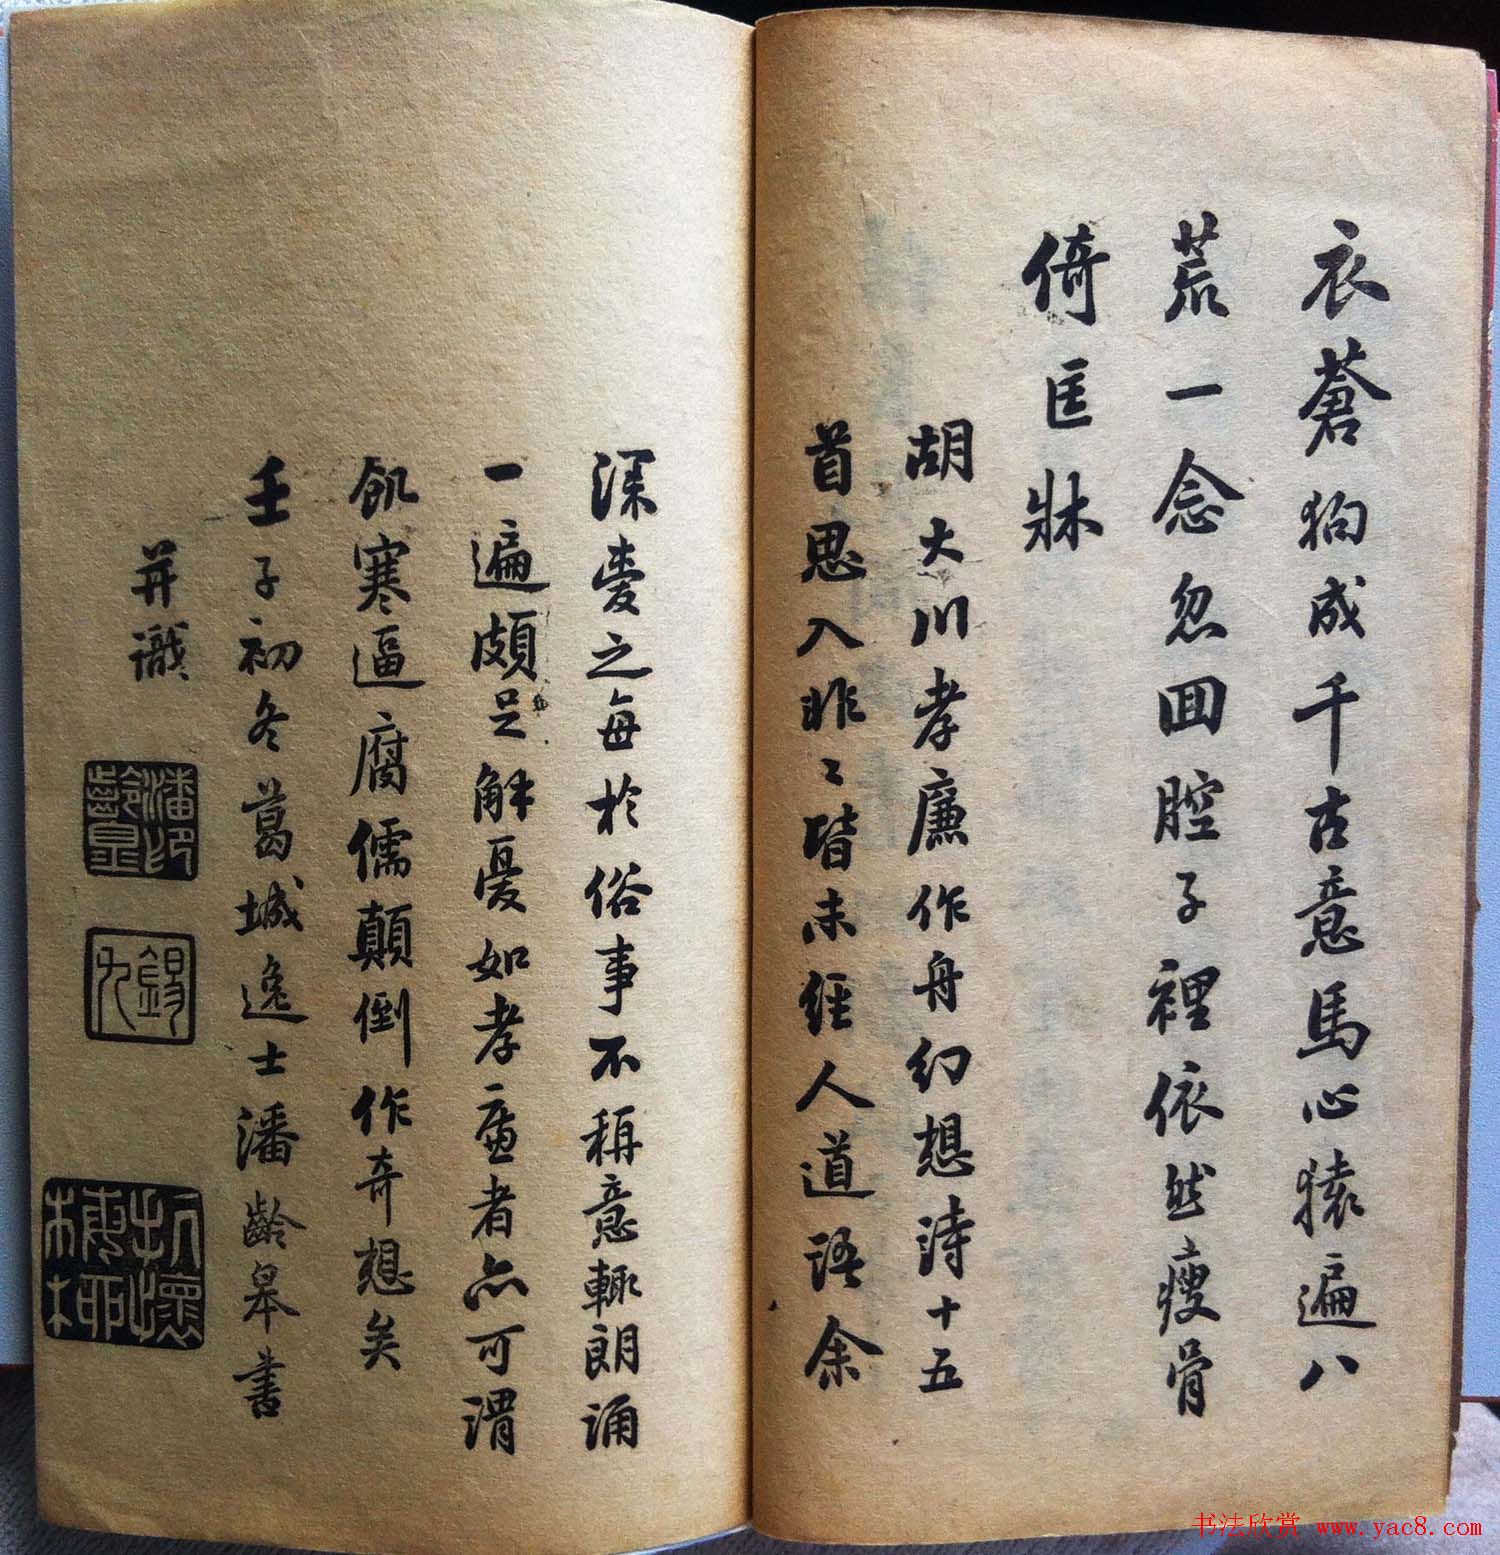 衣蒼狗成千古意馬心猿遍八
荒一念忽囬腔子裡依然瘦骨
倚匡牀
胡大川孝廉作舟幻想詩十五
首思入非〻皆未經人道語余
深愛之每於俗事不稱意輙朗誦
一遍頗足解憂如孝廉者亦可謂
飢寒逼腐儒顛倒作奇想矣
壬子初冬葛城逸士潘齡皋書
并識
潘齡皋印
錫九
书法欣赏 www.yac8.com